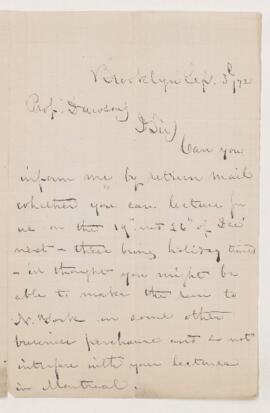 Brooklyn Sep. 3d/72
Prof. Dawson
D Sir,
Can you
inform me by return mail
whether you can lecture for
us on the 19" and 26" of Dec'
next - these being holiday times
- we thought you might be
able to make the run to
N. York on some other
business perchance and so not
interfere with your lectures
in Montreal.